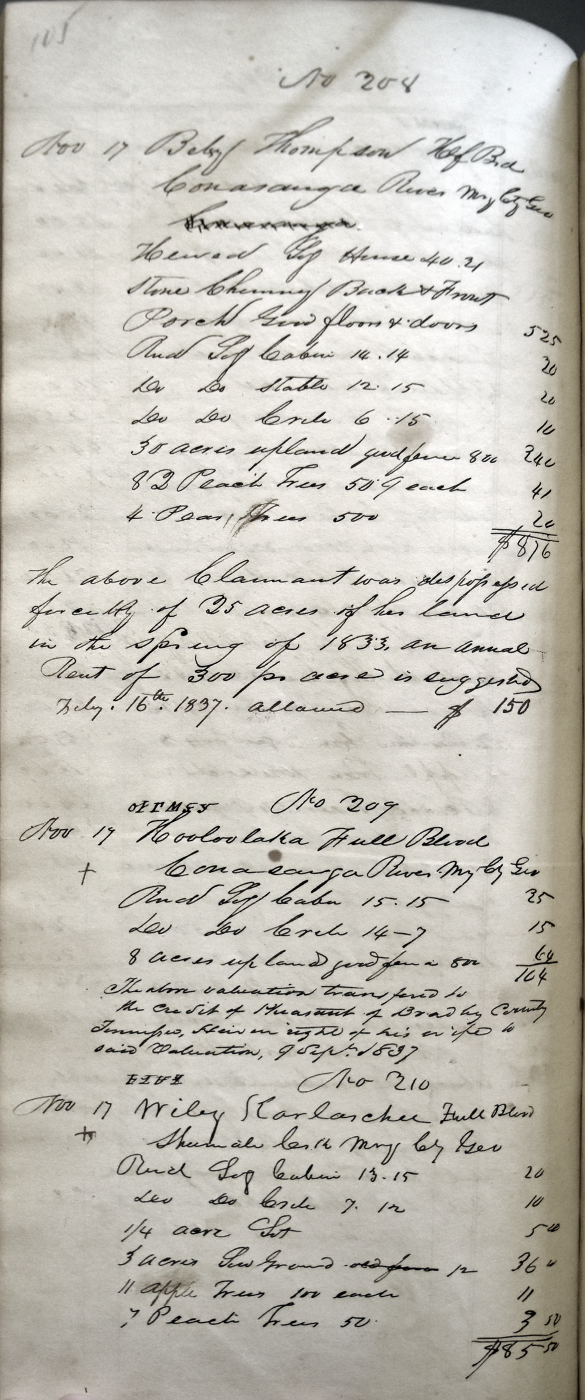 105
No 208
Nov 17 Betsy Thompson Hf Brd
Conasauga River Mry Cty Geo
Hewed Log House 40.21
Stone Chimney Back & Front
Porch Good floors & doors 525
Rnd Log Cabin 14.14 20
Do Do Stable 12.15 20
Do Do Crib 6.15 10
30 acres upland good fence 800 240
82 Peach Trees 50 c each 41
4 Pear Trees 500 20
$876
The above Claimant was dispossessed
forcibly of 25 acres of her land
in the Spring of 1833, an annual
Rent of 300 pr acre is suggested
Feby. 16th 1837. allowed — $ 150
No 209
Nov 17 Kooloolaka Full Blood
+ Conasauga River Mry Cty Geo
Rnd Log Cabin 15.15 25
Do Do Crib 14-7 15
8 acres upland good fence 800 64
104
The above valuation transfered to
the credit of Pheasant of Bradley County
Tennessee, Heir in right of his wife to
said Valuation, 9 Sept. 1837
No 210
Nov 17 Wiley Full Blood
+ Creek Mry Cty Geo
Rnd Log Cabin 13.15 20
Do Do Crib 7.12 10
1/4 acre Lot 5 00
3 acres Low Ground 12 36 00
11 apple Trees 100 each 11
7 Peach Trees 50 3 50
$85 50